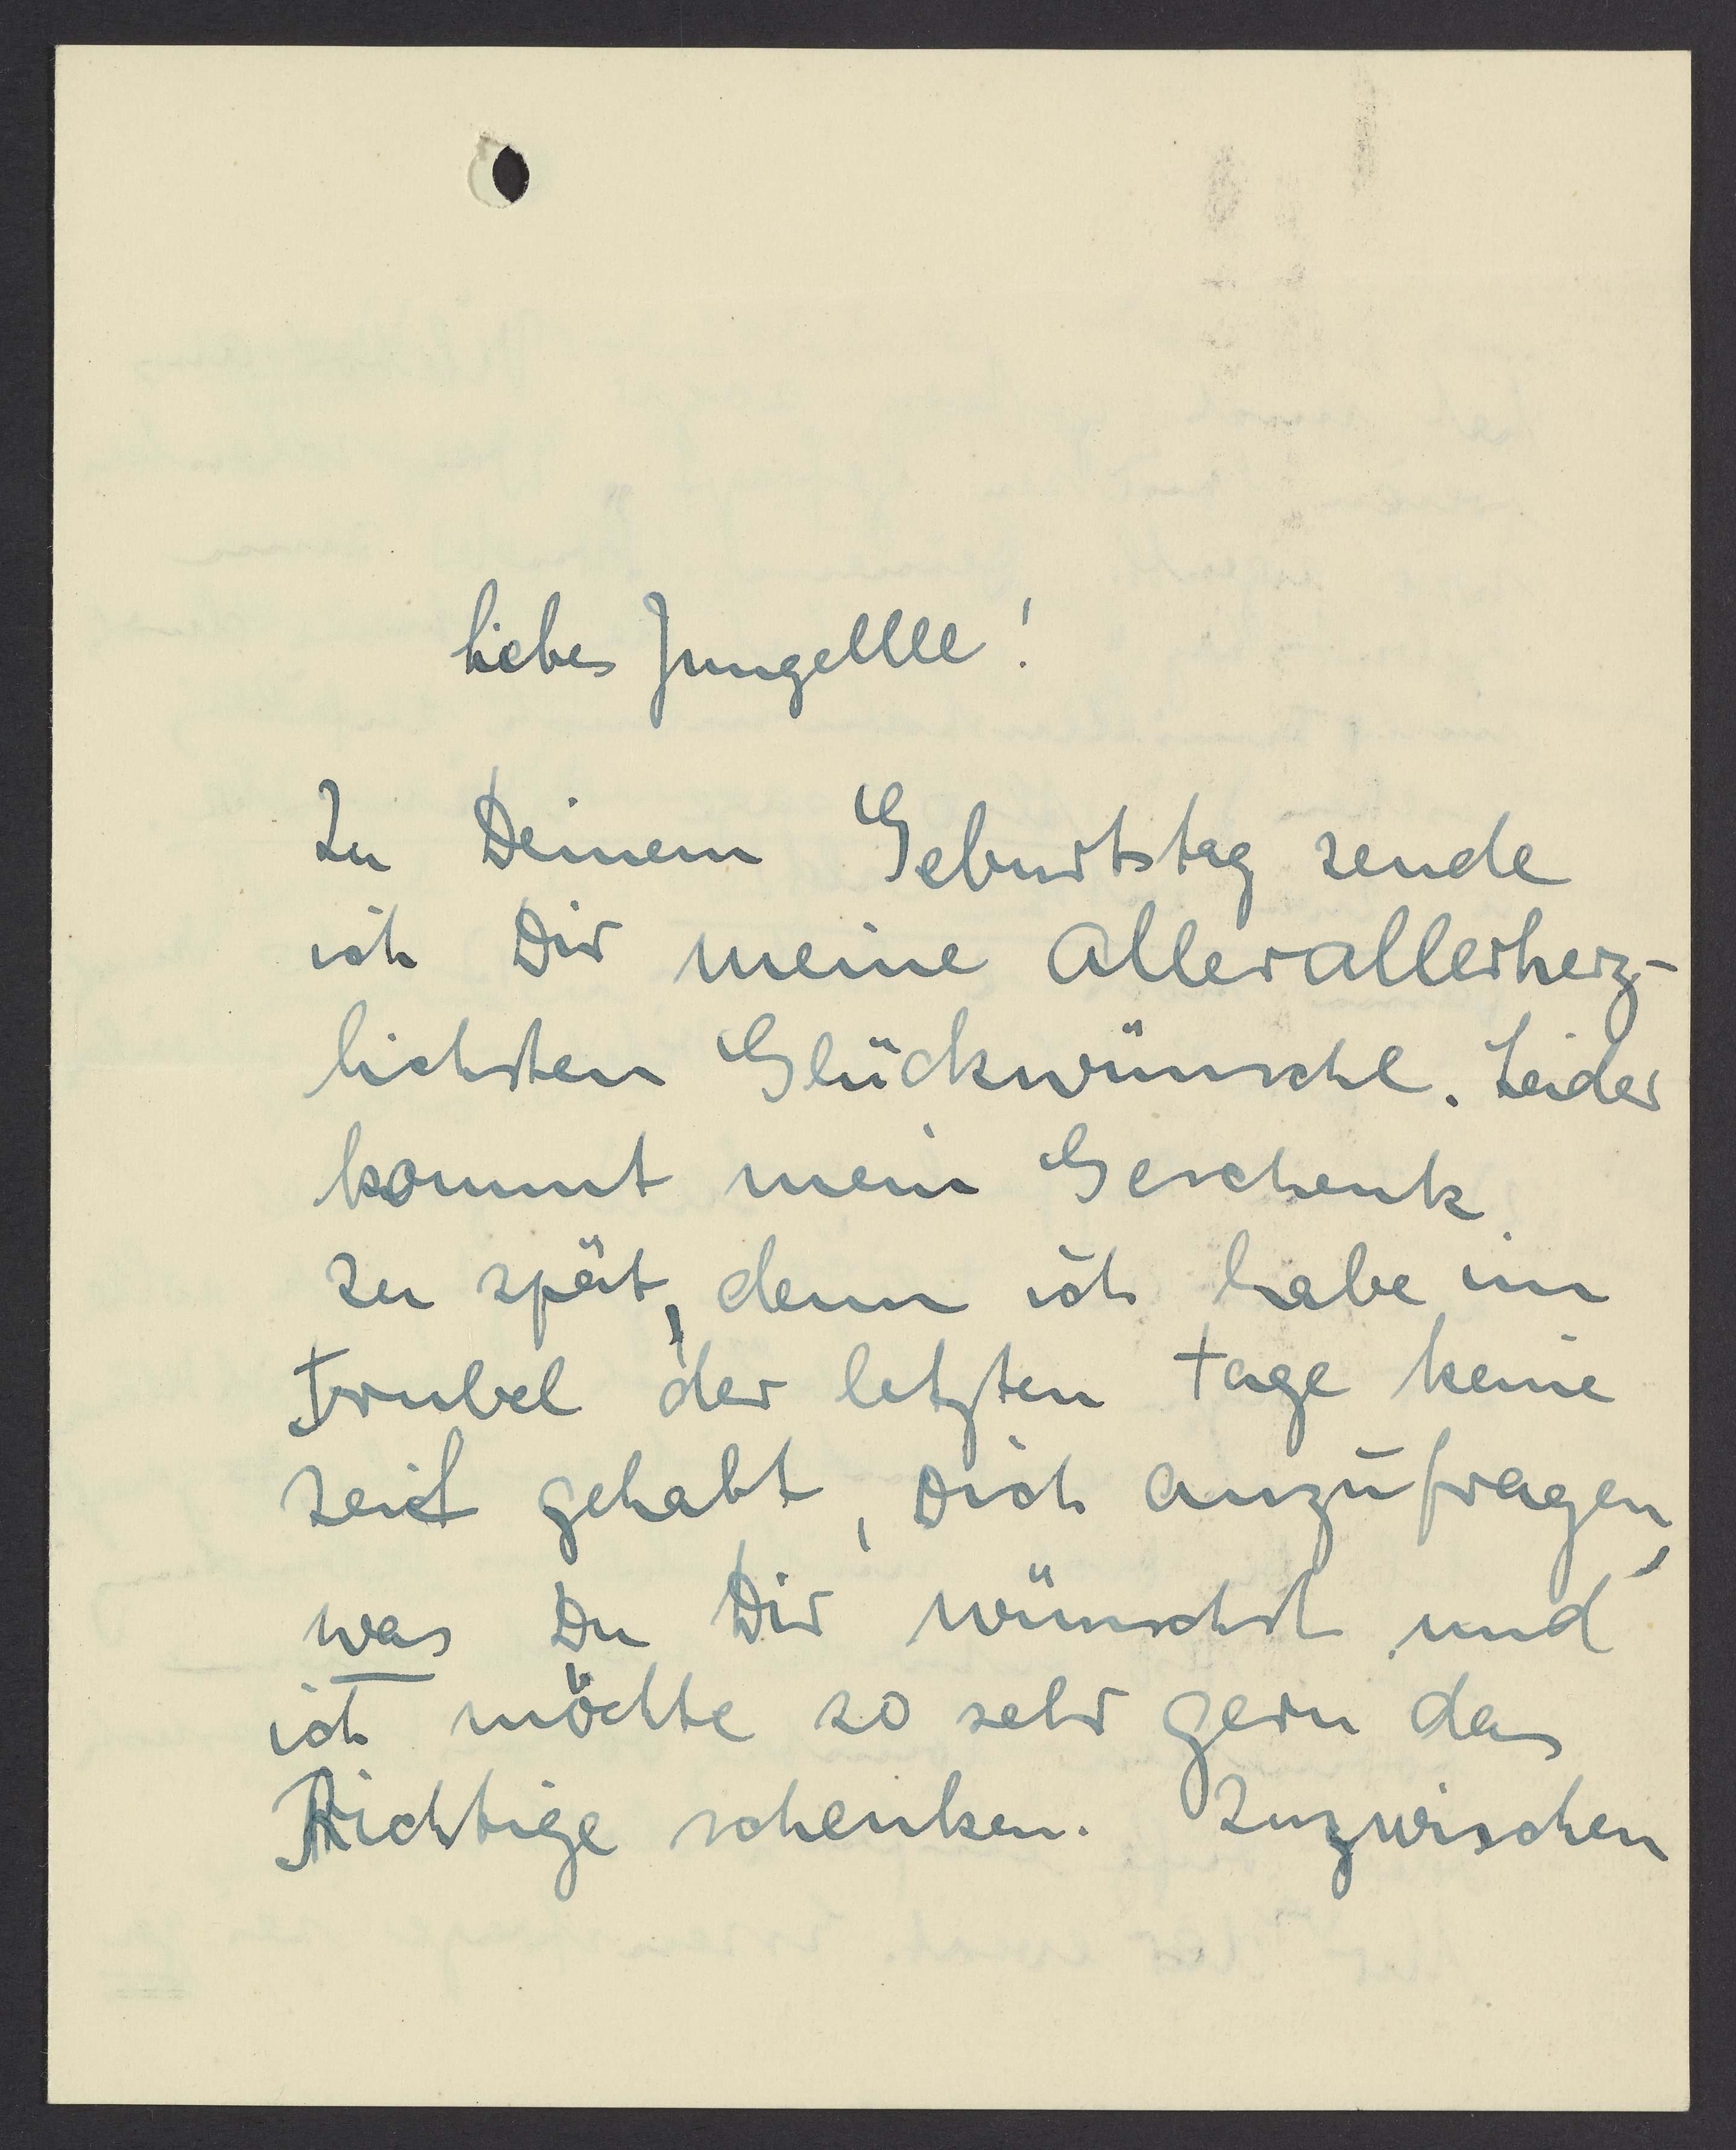 Liebes Jungellll!
Zu Deinem Geburtstag sende
ich Dir meine allerallerherz-
lichsten Glückwünsche. Leider
kommt mein Geschenk
zu spät, denn ich habe im
Trubel der letzten Tage keine
Zeit gehabt, Dich anzufragen,
was Du Dir wünschst und
ich möchte so sehr gern das
Richtige schenken. Inzwischen